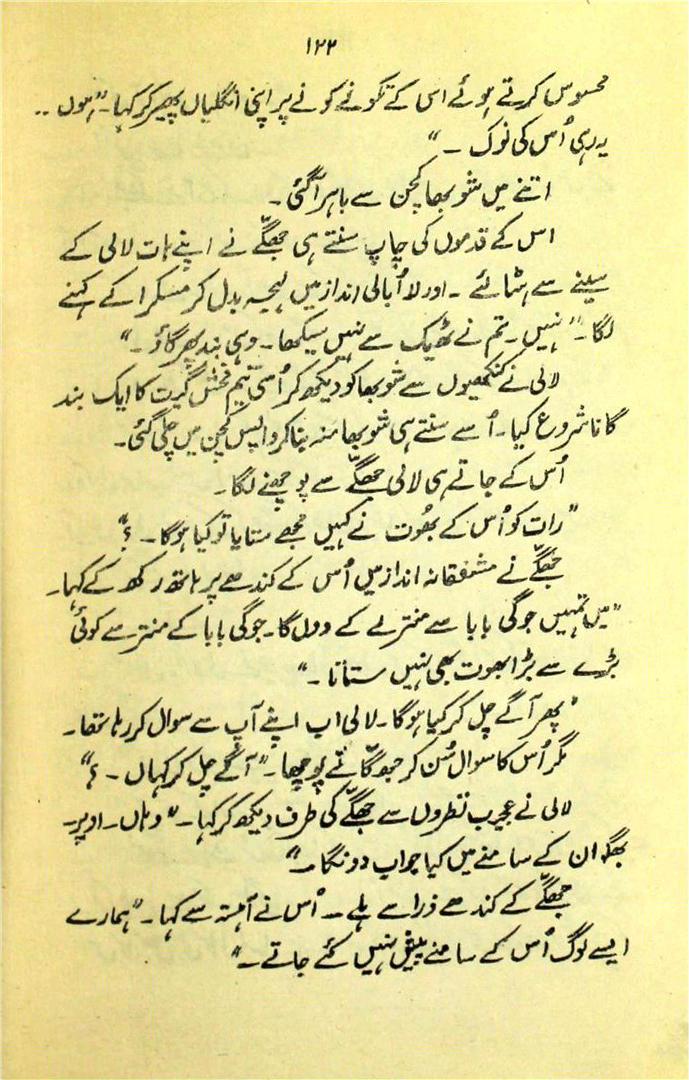 ۱۲۲
محسوس کرتے ہوئے اس کے تکونے کونے پر اپنی انگلیاں پھیر کر کہا۔ "ہوں ..
یہ رہی اُس کی نوک ۔"
اتنے میں شوبھا کچن سے باہر آگئی ۔
اس کے قدموں کی چاپ سنتے ہی جھگّے نے اپنے ہات لالی کے
سینے سے ہٹائے ۔ اور لا اُبالی انداز میں لہجہ بدل کر مسکرا کے کہنے
لگا۔ "نہیں۔ تم نے ٹھیک سے نہیں سیکھا۔ وہی بند پھر گاؤ ۔"
لالی نے کنکھیوں سے شوبھا کو دیکھ کر اُسی نیم فحش گیت کا ایک بند
گانا شروع کیا۔ اُسے سنتے ہی شوبھا منہ بنا کر واپس کچن میں چلی گئی۔
اُس کے جاتے ہی لالی جھگّے سے پوچھنے لگا۔
"رات کو اُس کے بھُوت نے کہیں مجھے ستایا تو کیا ہوگا ۔ ؟"
جھگّے نے مشفقانہ انداز میں اُس کے کندھے پر ہاتھ رکھ کے کہا۔
"میں تمہیں جوگی بابا سے منتر لے کے دوں گا۔ جوگی بابا کے منتر سے کوئی
بڑے سے بڑا بھوت بھی نہیں ستاتا ۔"
"پھر آگے چل کر کیا ہوگا۔ لالی اب اپنے آپ سے سوال کر رہا تھا۔
مگر اُس کا سوال سُن کر جھگّا نے پوچھا۔ "آگے چل کر کہاں ۔ ؟"
لالی نے عجیب نظروں سے جھگّے کی طرف دیکھ کر کہا۔ "وہاں۔ اوپر۔
بھگوان کے سامنے میں کیا جواب دونگا ۔"
جھگّے کے کندھے ذرا سے ہلے ۔ اُس نے آہستہ سے کہا۔ "ہمارے
ایسے لوگ اُس کے سامنے پیش نہیں کئے جاتے ۔"